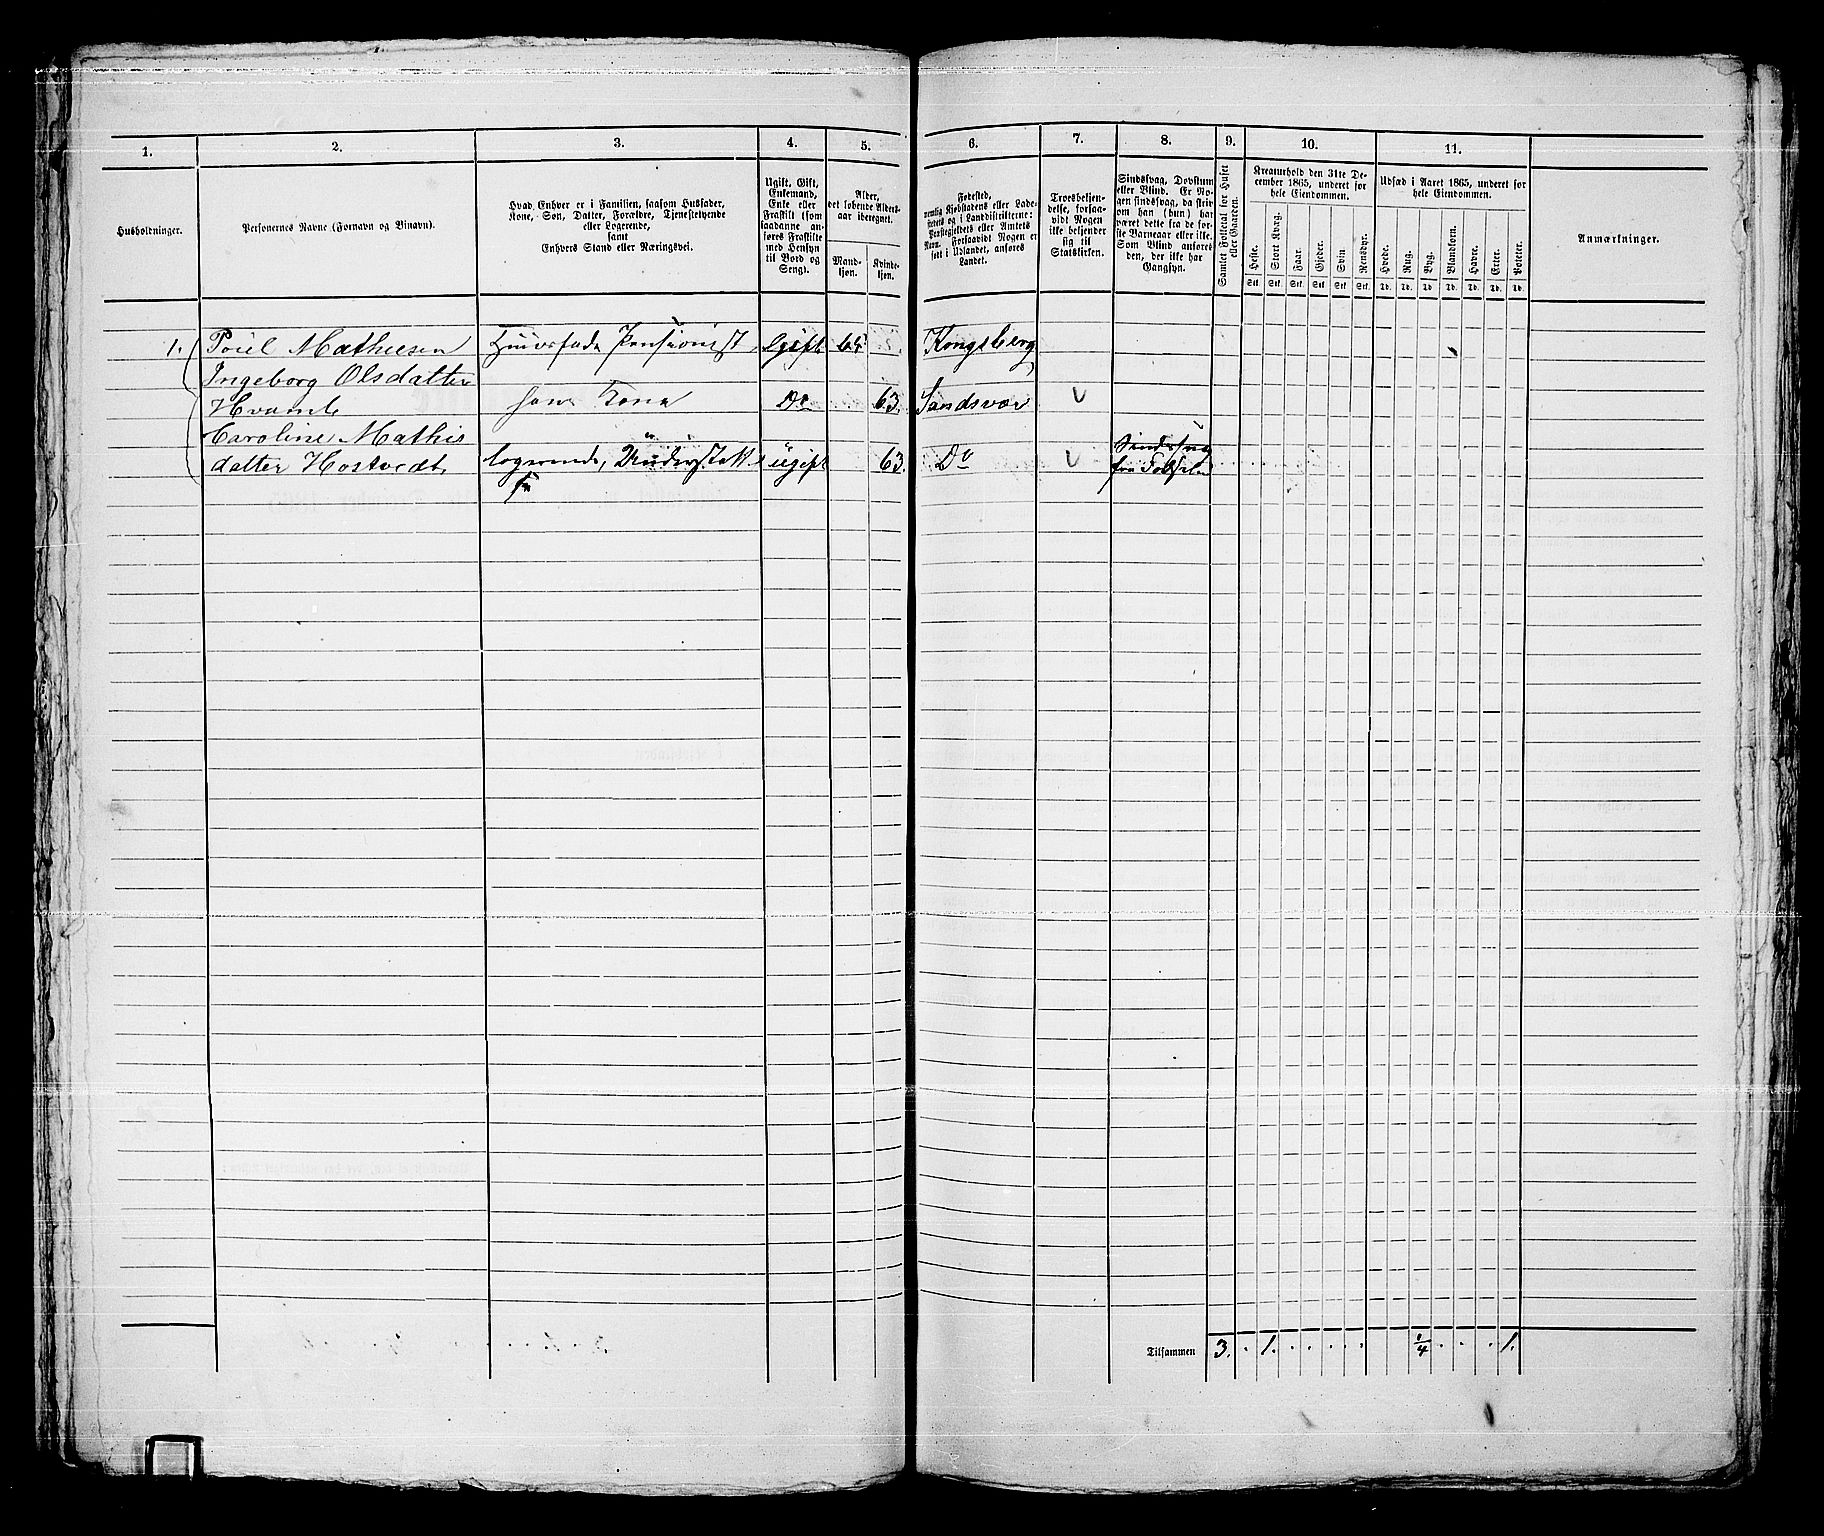 1.
2.
3.
4.
5.
6.
7.
8.
9.
10.
11.
Husholdninger.
Personernes Navne (Fornavn og Binavn).
Hvad Enhver er i Familien, saasom Husfader,
Kone, Søn, Datter, Forældre, Tjenestetyende
eller Logerende,
samt
Enhvers Stand eller Næringsvei.
Ugift, Gift,
Enkemand,
Enke eller
Fraskilt (som
saadanne an-
føres Fraskilte
med Hensyn
til Bord og
Seng).
Alder,
det løbende Alders-
aar iberegnet.
Mand-
kjøn.
Kvinde-
kjøn.
Fødested,
nemlig Kjøbstadens eller Lade-
stedets og i Landdistrikterne:
Præstegjeldets eller Amtets
Navn. Forsaavidt Nogen er
født i Udlandet, anføres
Landet.
Troesbekjen-
delse, forsaa-
vidt Nogen
ikke bekjender
sig til
Statskirken.
Sindssvag, Døvstum
eller Blind. Er No-
gen sindssvag, da skriv
om han (hun) har
været dette fra de før-
ste Barneaar eller ikke.
Som Blind anføres
den, der ikke har
Gangsyn.
Samlet Folketal for Huset
eller Gaarden.
Kreaturhold den 31te De-
cember 1865, underet for
hele Eiendommen.
Heste.
Stort Kvæg.
Faar.
Gjeder.
Svin
Rensdyr.
Stk. Stk. Stk. Stk. Stk. Stk.
Udsæd i Aaret 1865, underet for
hele Eiendommen.
Hvede.
Rug.
Byg.
Blandkorn.
Havre.
Erter.
Poteter.
Td. Td. Td Td. Td. Td. Td.
Anmærkninger.
1. Poul Mathiesen Huusfader Pensionist Gift 64 Kongsberg
Ingeborg Olsdatter
Hvamb hans Kone Do 63. Sandsvær V
Caroline Mathis
datter Hostvedt logerende, Understøttel ugift 63 Do V Sindssvag
fra
Tilsammen 3. . 1. . . . . 1/4 . . . 1.